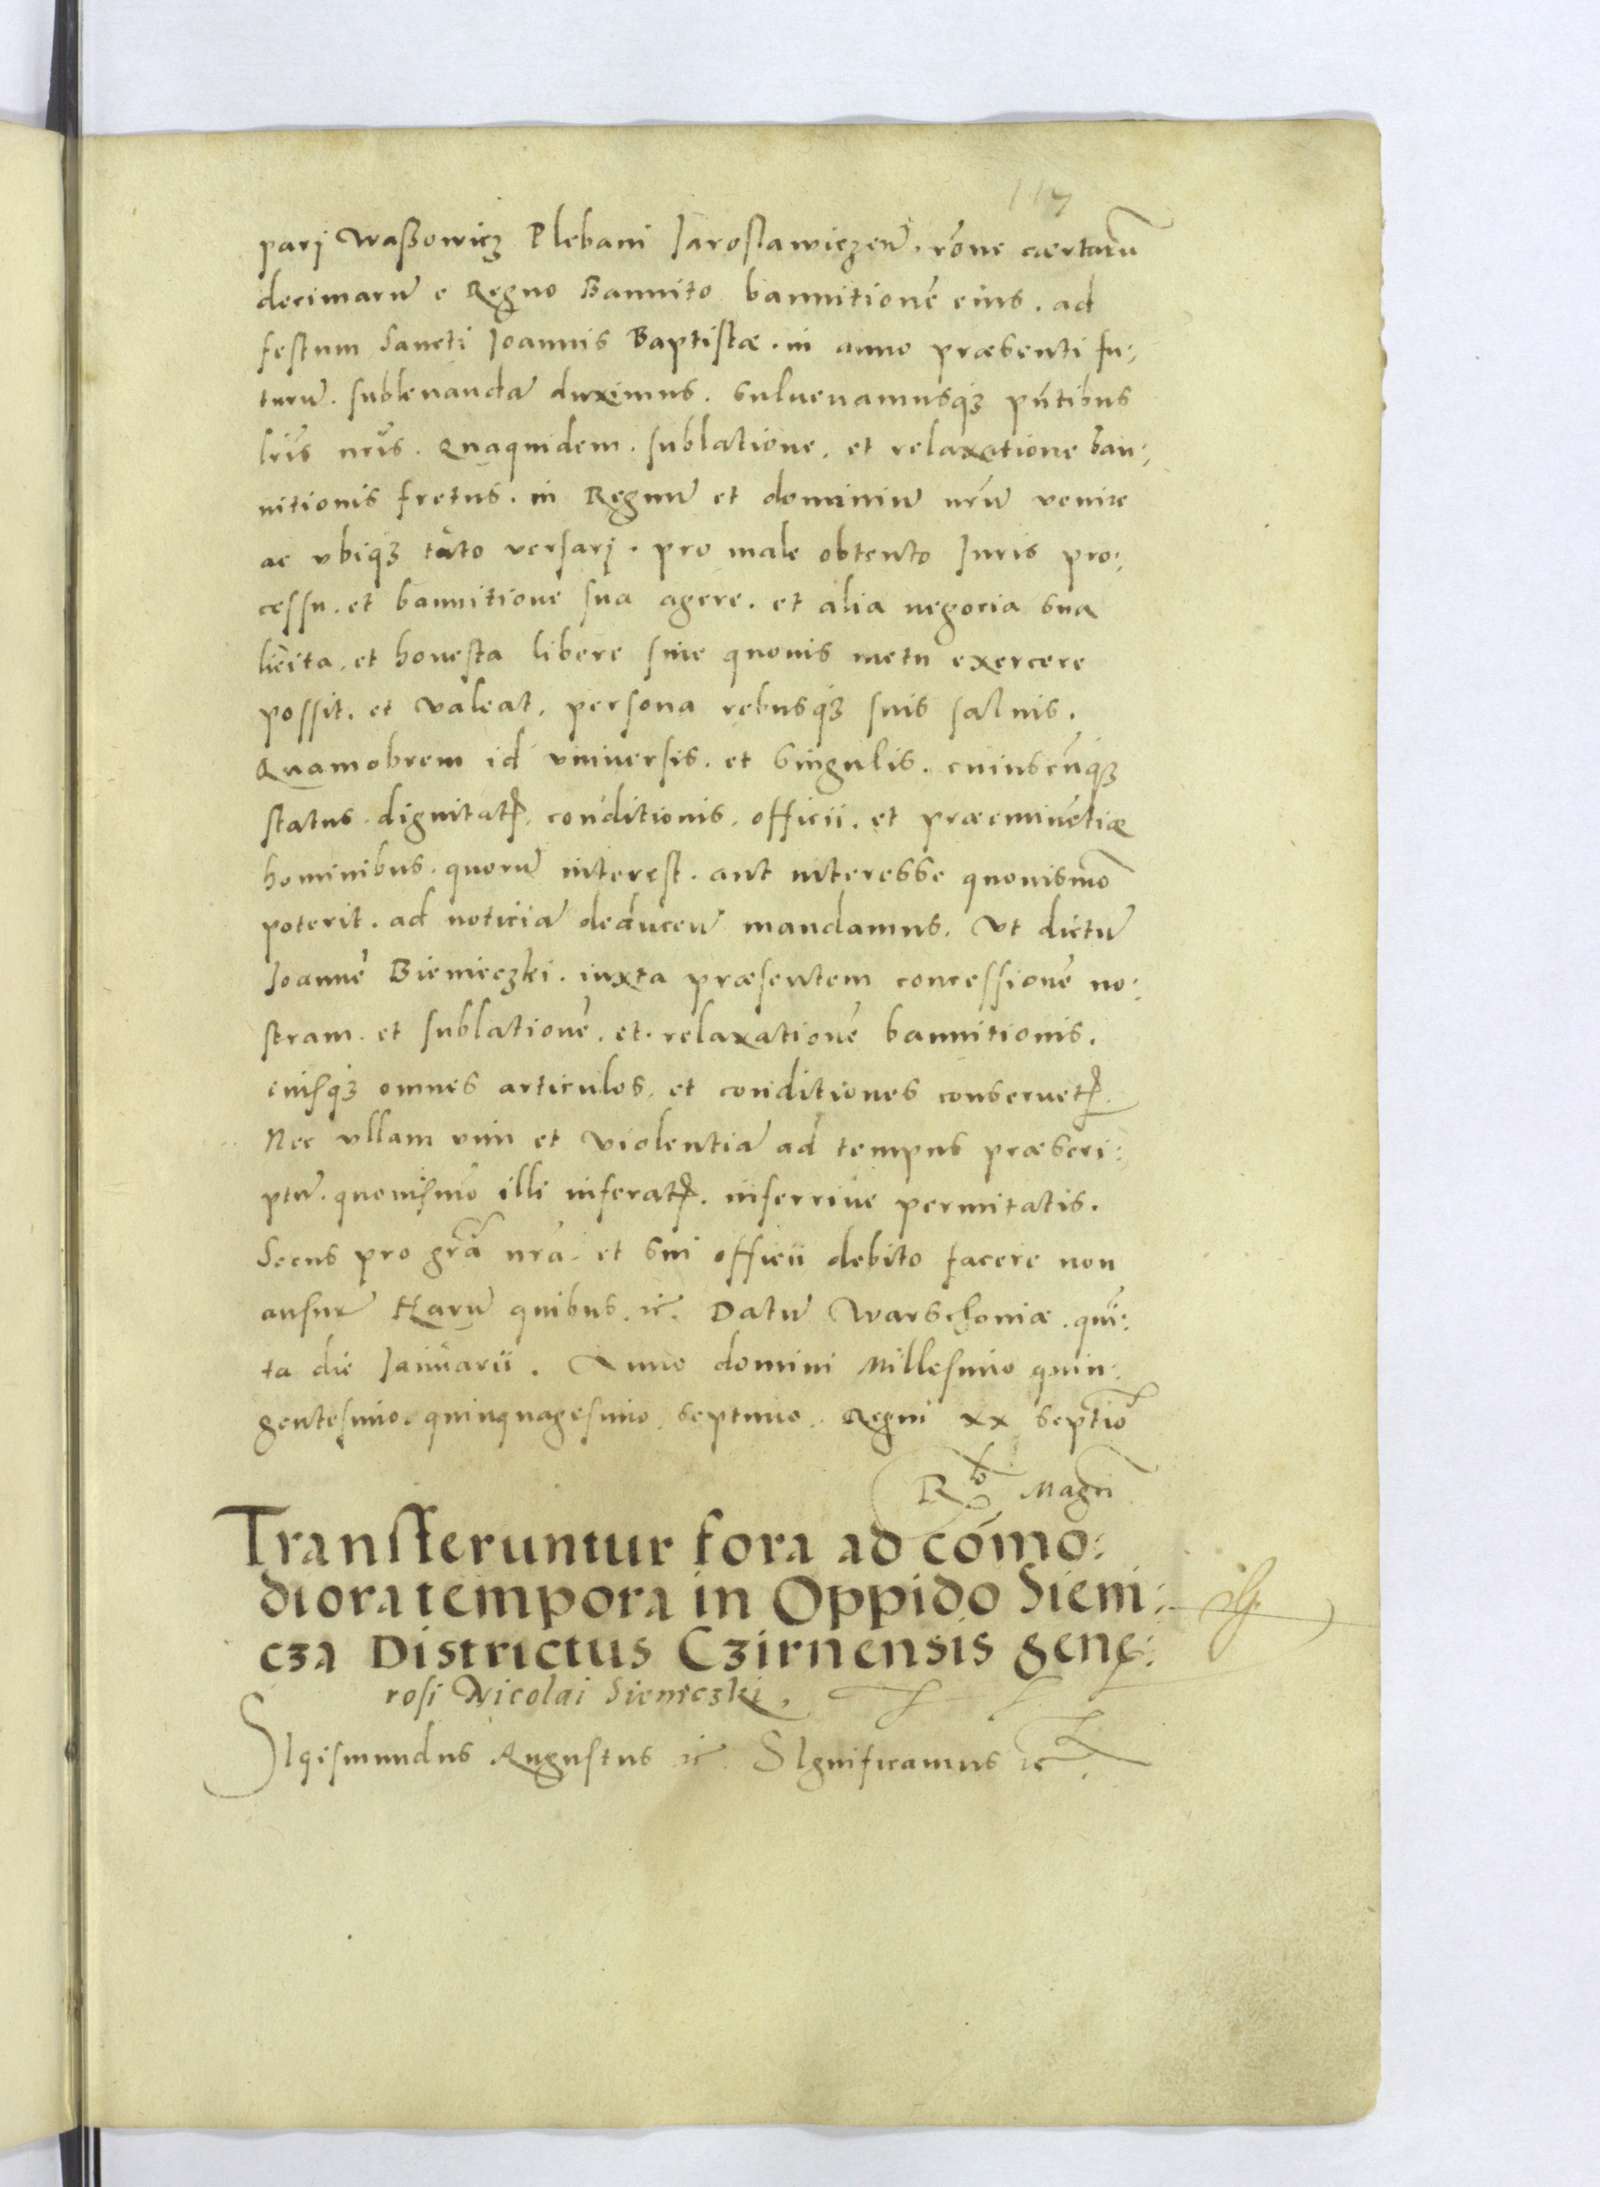 117
parj Waßowicz Plebani Jaroslawiczeñ. rõne certarũ
decimarũ e Regno Bannito bannitionẽ eius. ad
festum Sancti Joannis Baptistæ. in anno præsenti fu:
turũ. subleuandã duximus. suleuamusqȝ pñtibus
lr̃is nr̃is. Quaquidem. sublatione. et relaxatione ban:
nitionis fretus. in Regnũ et dominiũ nr̃ũ venire
ac vbiqȝ tuto versarj. pro male obtento Juris pro:
cessu. et bannitione sua agere. et alia negocia sua
licita. et honesta libere sine quouis metu exercere
possit. et valeat. persona rebusqȝ suis saluis.
Quamobrem id vniuersis. et singulis. cuiuscũqȝ
status. dignitatꝭ. conditionis. officii. et præeminẽtiæ
hominibus. quorũ interest. aut interesse quouismõ
poterit. ad noticiã deduceñ mandamus. Vt dictũ
Joannẽ Bienieczki. iuxta præsentem concessionẽ no:
stram. et sublationẽ. et. relaxationẽ bannitionis.
eiusqȝ omnes articulos. et conditiones conseruetꝭ.
Nec vllam vim et violentiã ad tempus præscri:
ptũ. quouismõ illi inferatꝭ. inferriue permitatis.
Secus pro gr̃a nr̃a. et sui officii debito facere non
ausuri Harũ quibus. ꝛc. Datũ Warschouiæ. quĩ:
ta die Januarii. Anno domini Millesimo quin:
gentesimo. quinquagesimo septimo. Regni xx septĩo
Magñ
Transferuntur fora ad cõmo:
diora tempora in Oppido Sieni:
cza Districtus Czirnensis gene:
rosi Nicolai Sieniczki.
SIgismundus Augustus ꝛc SIgnificamus ꝛc.